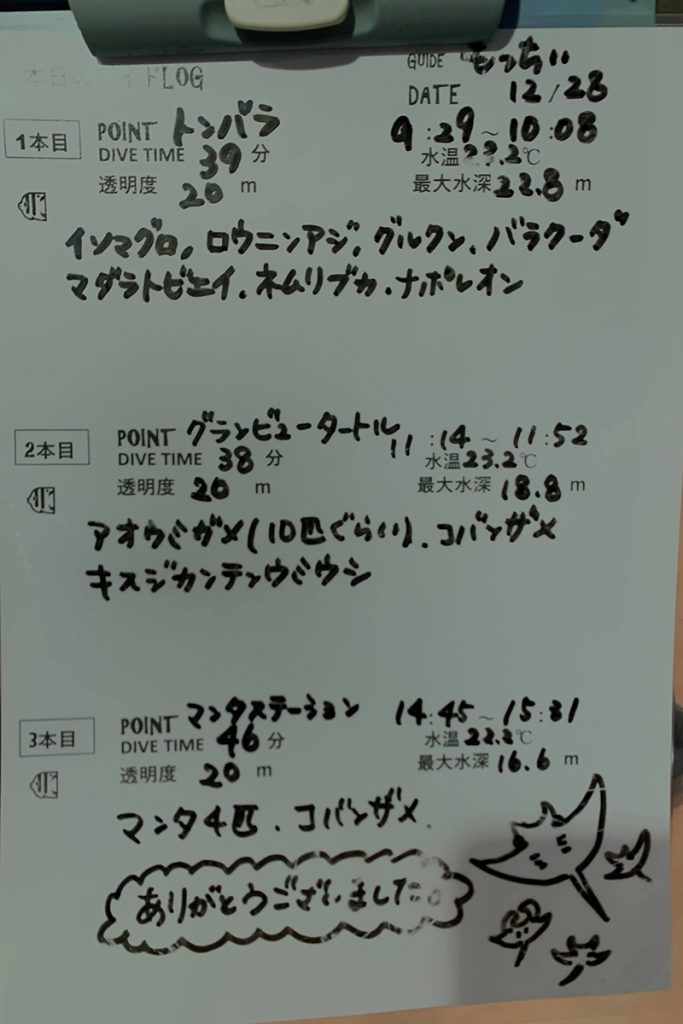 本日の ドLOG
GUIDE もっちぃ
DATE 12/28
1本目 POINT トンバラ 9:29~10:08
DIVE TIME 39分 水温23.2℃
透明度 20m 最大水深22.8m
イソマグロ、ロウニンアジ、グルクン、バラクーダ
マダラトビエイ、ネムリブカ、ナポレオン
2本目 POINT グランビュータートル 11:14~11:52
DIVE TIME 38分 水温23.2℃
透明度 20m 最大水深18.8m
アオウミガメ(10匹ぐらい)、コバンザメ
キスジカンテンウミウシ
3本目 POINT マンタステーション 14:45~15:31
DIVE TIME 46分 水温23.2℃
透明度 20m 最大水深16.6m
マンタ4匹、コバンザメ
ありがとうございました。